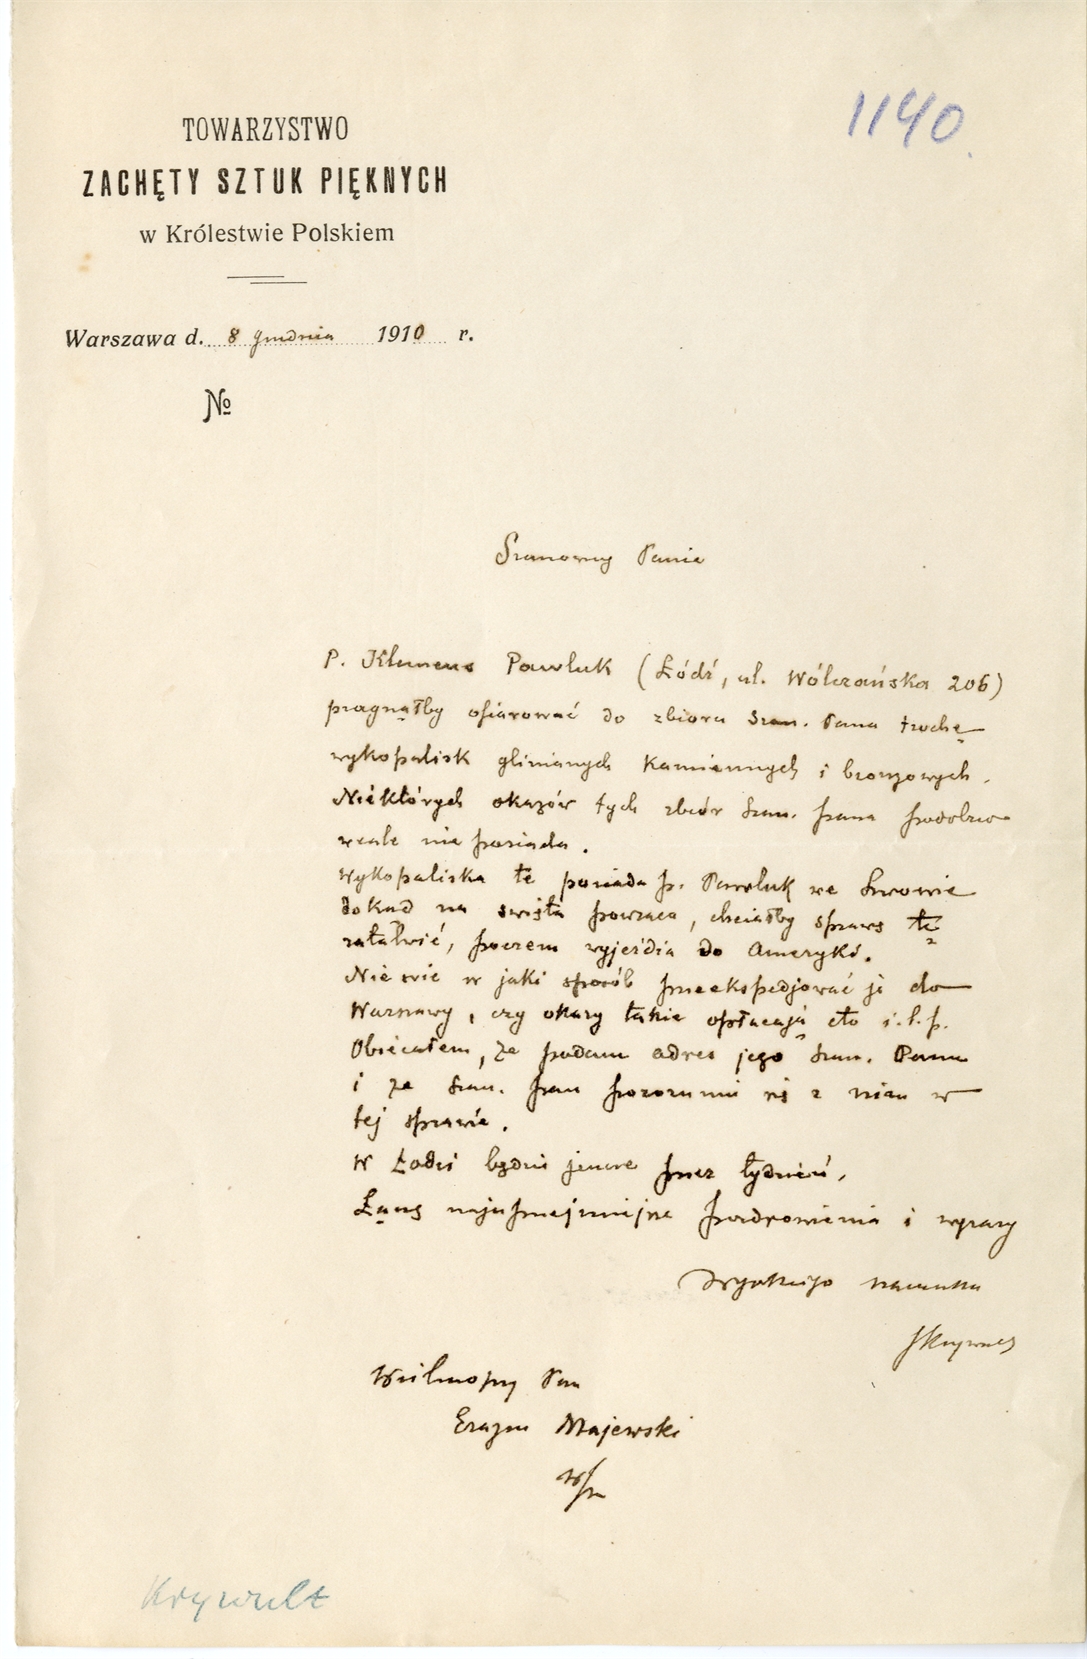 1140.
TOWARZYSTWO
ZACHĘTY SZTUK PIĘKNYCH
w Królestwie Polskiem
Warszawa d. 8 grudnia 1910 r.
№
Szanowny Panie
P. Klemens Pawluk (Łódź, ul. Wólczańska 206)
pragnąłby ofiarować do zbioru Szan. Pana trochę
wykopalisk glinianych kamiennych i bronzowych.
Niektórych okazów tych zbiór Szan. Pana podobno
wcale nie posiada.
Wykopaliska te posiada p. Pawluk we Lwowie
dokąd na święta powraca, chciałby sprawę tę
załatwić, poczem wyjeżdża do Ameryki.
Nie wie w jaki sposób przeekspedjować je do
Warszawy, czy okazy takie opłacają cło i.t.p.
Obiecałem, że podam adres jego Szan. Panu
i że Szan. Pan porozumi się z nim w
tej sprawie.
W Łodzi będzie jeszcze przez tydzień.
Łączę najuprzejmiejsze pozdrowienia i wyrazy
wysokiego szacunku
Wielmożny Pan
Erazm Majewski
w/m
Krywult